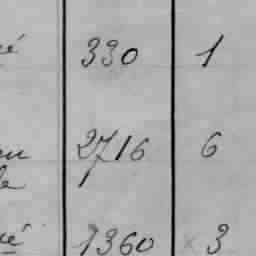 é 330 1
2716 6
é 1360 3